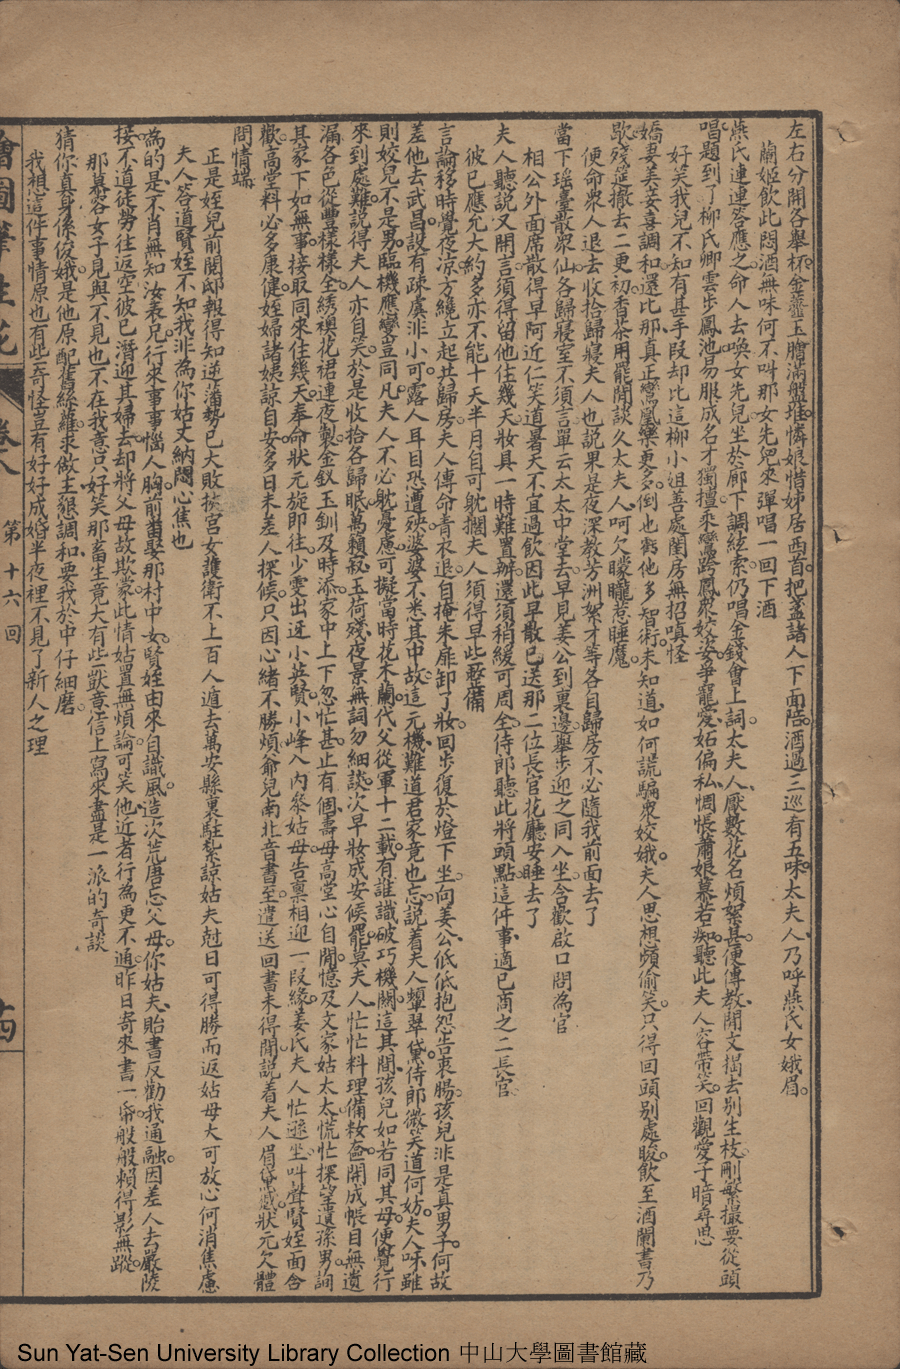 左右分開各舉杯金虀玉膾滿盤堆憐娘惜姊居西首把盞諸人下面陪酒過三巡有五味太夫人乃呼燕氏女娥眉
蘭姬飲此悶酒無味何不叫那女先兒來彈唱一回下酒
燕氏連連答應之命人去喚女先兒坐於廊下調絃索仍唱金錢會上詞太夫人厭數花名煩絮甚便傳教開文搊去別生枝刪繁撮要從頭
唱題到了柳氏卿雲步鳳池易服成名才獨擅來鸞跨鳳衆姣妾爭寵愛妬偏私惆悵蕭娘慕若痴聽此夫人容帶笑回觀愛子暗尋思
好笑我兒不知有甚手段却比這柳小姐善處閨房無招嗔怪
嬌妻美妾喜調和還比那真正鸞凰樂更多倒也虧他多智術未知道如何謊騙衆姣娥夫人思想頻偷笑只得回頭別處睃飲至酒闌書乃
歇殘筵撤去二更初香茶用罷閒談久太夫人呵欠矇矓惹睡魔
便命衆人退去收拾歸寢夫人也說果是夜深教芳洲絮才等各自歸房不必隨我前面去了
當下瑤臺散衆仙各歸寢室不須言單云太太中堂去早見姜公到裏邊舉步迎之同入坐含歡啟口問為官
相公外面席散得早阿近仁笑道暑天不宜過飲因此早散已送那二位長官花廳安睡去了
夫人聽說又開言須得留他住幾天妝具一時難置辦還須稍緩可周全侍郎聽此將頭點這件事適已商之二長官
彼已應允大約多亦不能十天半月自可躭擱夫人須得早些整備
言論移時覺夜涼方纔立起共歸房夫人傳命青衣退自掩朱扉卸了妝回步復於燈下坐向姜公低低抱怨告衷腸孩兒非是真男子何故
差他去武昌設有疎虞非小可露人耳目恐遭殃婆婆不悉其中故這元機難道君家竟也忘說着夫人顰翠黛侍郎微笑道何妨夫人呀雖
則姣兒不是男臨機應變豈同凡夫人不必躭憂慮可擬當時花木蘭代父從軍十二載有誰識破巧機關這其間孩兒如若同其母便覺行
來到處難說得夫人亦自笑於是收拾各歸眠萬籟寂玉荷殘夜景無詞勿細談次早妝成安候罷莫夫人忙忙料理備粧奩開成帳目無遺
漏各色從豐樣樣全綉襖花裙連夜製金釵玉釧及時添家中上下忽忙甚止有個壽母高堂心自閒憶及文家姑太太慌忙探望遺孫男詢
其家下如無事接取同來住幾天奉命狀元旋即往少雯出迓小英賢小峰入內叅姑母告禀相迎一段緣姜氏夫人忙遜坐叫聲賢姪面含
歡高堂料必多康健姪婦諸姨諒自安多日未差人探候只因心緒不勝煩爺兒南北音書至遣送回書未得閒說着夫人眉黛蹙狀元欠體
問情端
正是姪兒前閱邸報得知逆藩勢已大敗挨宮女護衛不上百人遁去萬安縣裏駐紮諒姑夫尅日可得勝而返姑母大可放心何消焦慮
夫人答道賢姪不知我非為你姑丈納悶心焦也
為的是不肖無知汝表兄行來事事惱人胸前畨娶那村中女賢姪由來自識風造次荒唐忘父母你姑夫貽書反勸我通融因差人去嚴陵
接不道徒勞往返空彼已潛迎其婦去却將父母故欺蒙此情姑置無煩論可笑他近者行為更不通昨日寄來書一帋般般賴得影無蹤
那慕容女子見與不見也不在我意只好笑那畜生竟大有些獃意信上寫來盡是一派的奇談
猜你真身係俊娥是他原配舊絲蘿求做主懇調和要我於中仔細磨
我想這件事情原也有些奇怪豈有好好成婚半夜裡不見了新人之理
繪圖筆生花 卷八 第十六回 十四
Sun Yat-Sen University Library Collection 中山大學圖書館藏